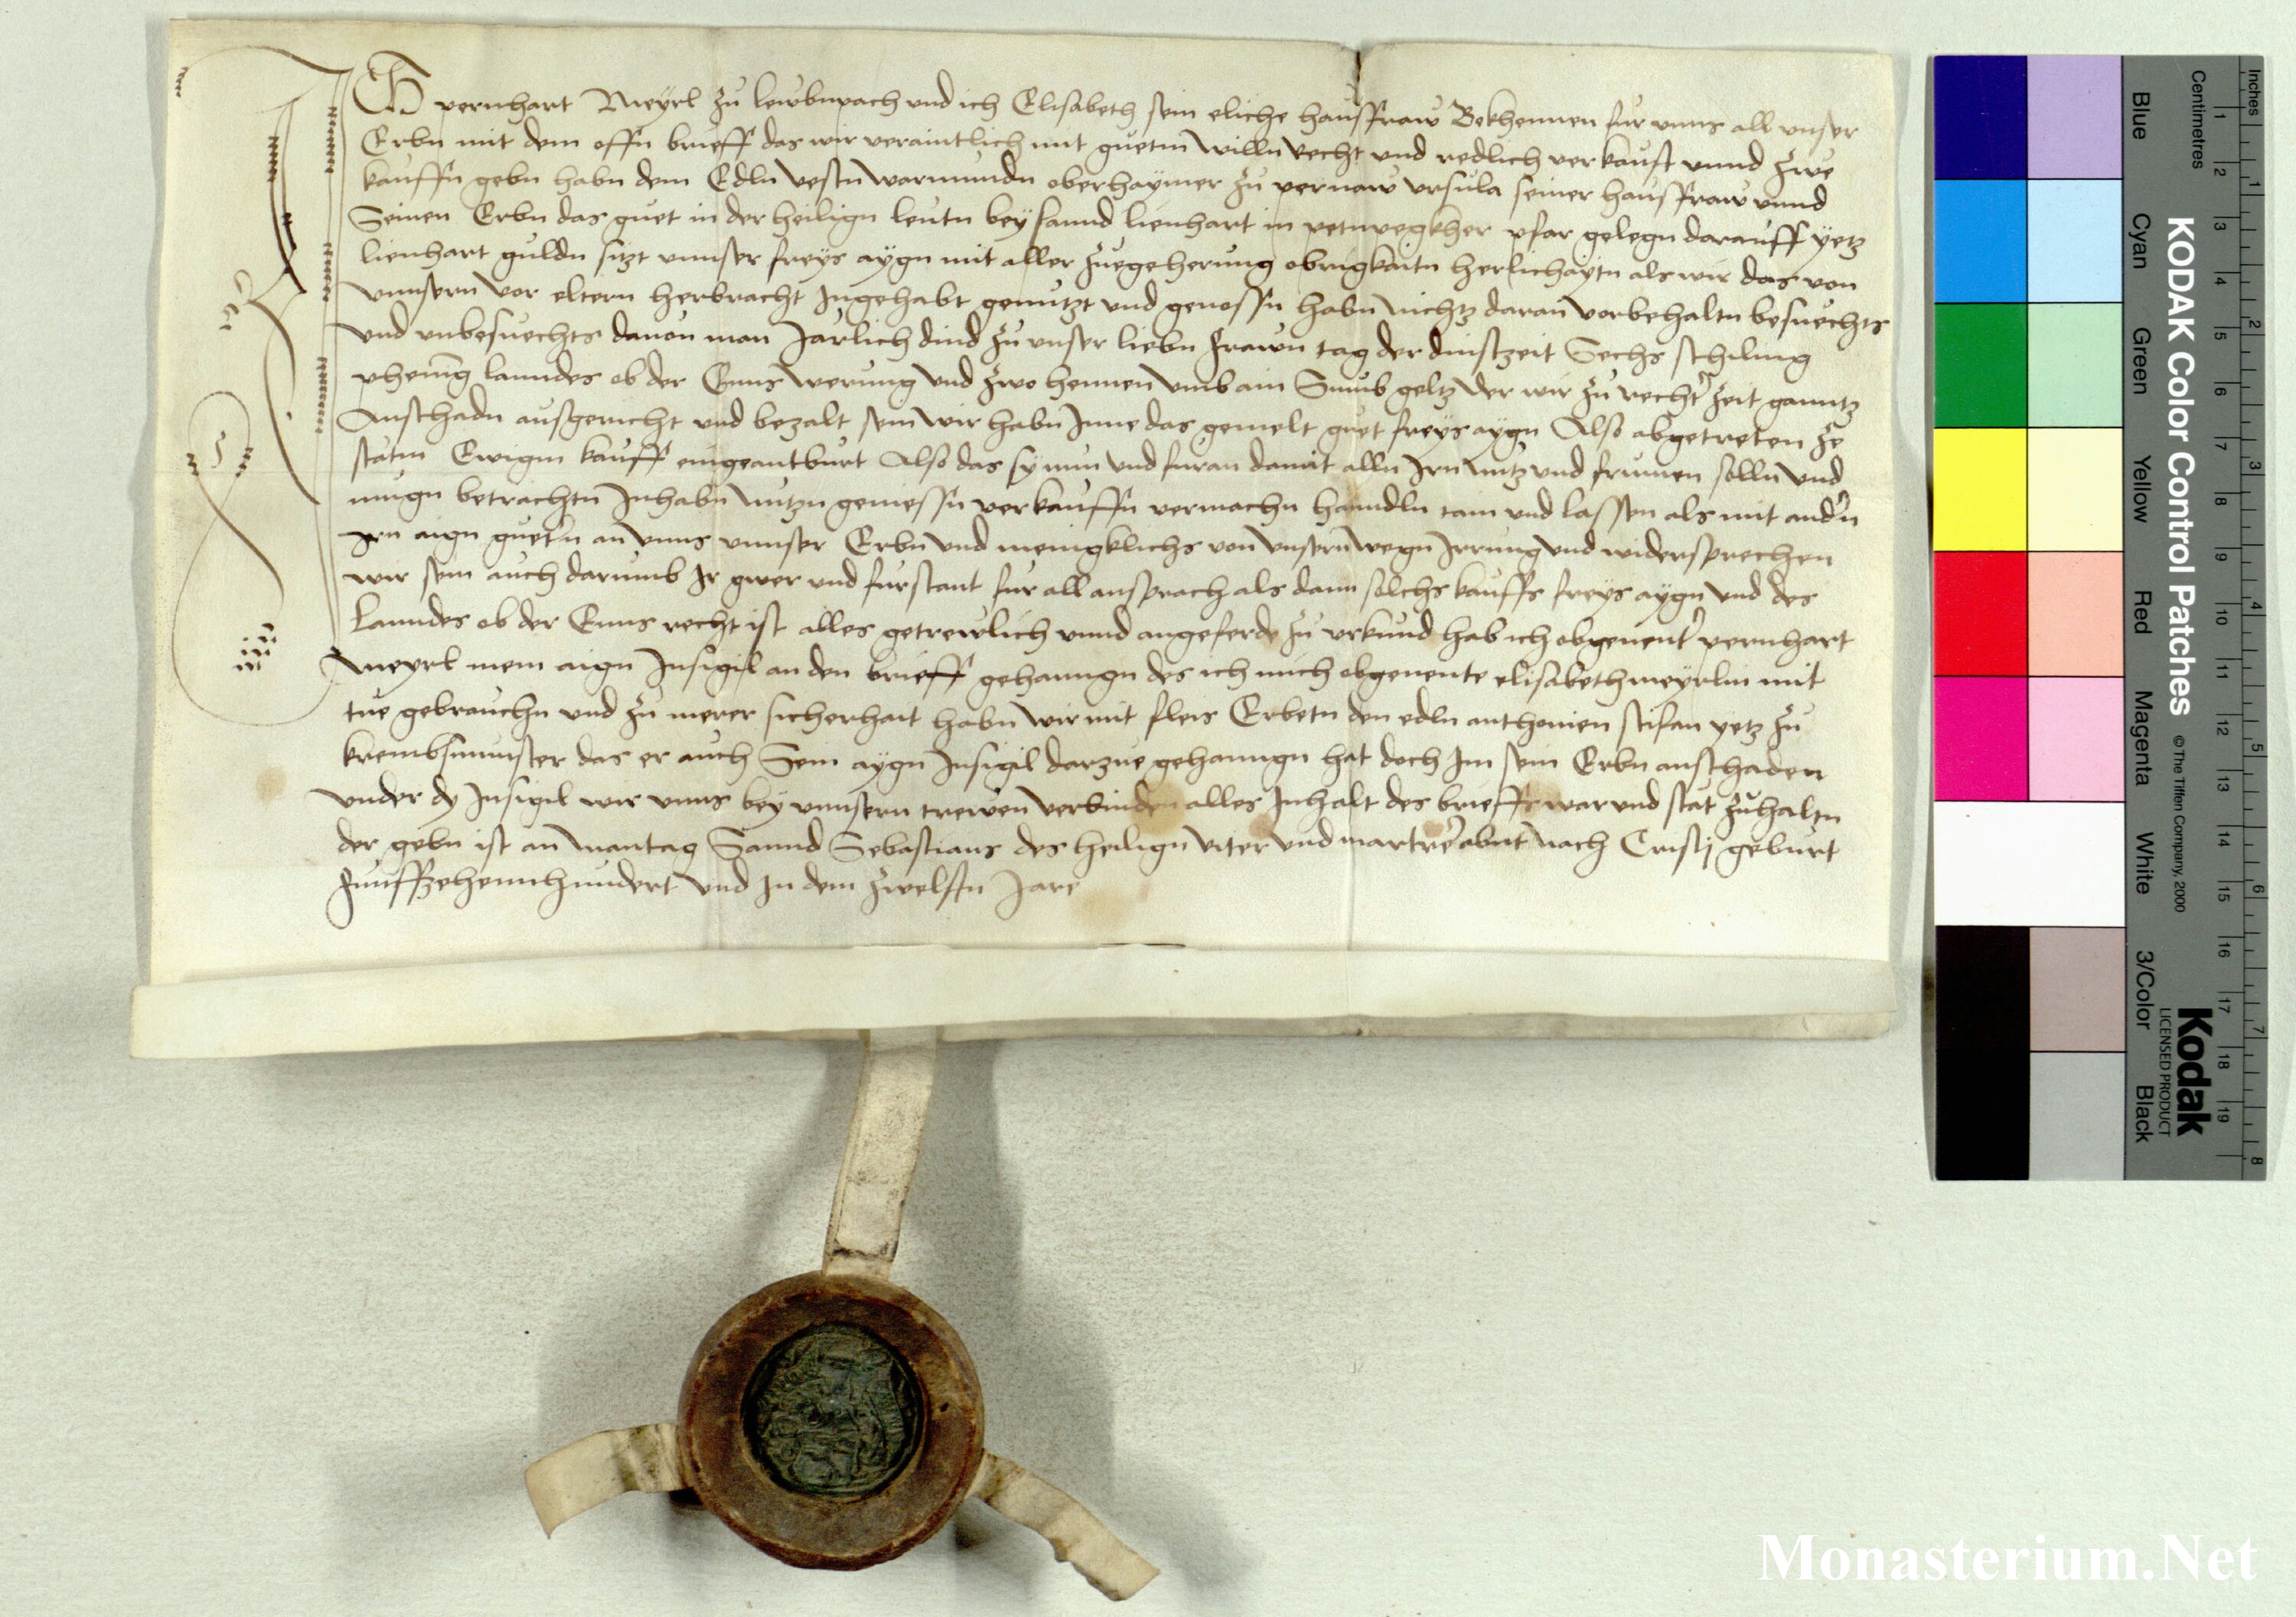 Ich pernhart Meyrl zu lewbmpach und ich Elisabeth sein eliche hausfraw Bekhennen fur unns all unser
Erbn mit dem offn brieff das wir veraintlich mit guetm willn Recht und redlich verkaufft unnd zwe
kauffn gebn habn dem Edln vestn warmundn oberhaymer zu pernaw ursula seiner hausfraw unnd
Seinen Erbn das guet in der heilign leutn bey sannd lienhart in petnpegkher pfar gelegn darauff yetz
lienhart guldn sitzt unnser freys aygn mit aller zuegeherung obrigkaitn herlichaytn als wir das von
unnsern vor eltern herbracht Ingehabt genutzt und genossn habn nichtz daran vorbehaltn besuechts
und unbesuechts davon man Jarlich dind zu unser liebn frawn tag der dinstzeit Sechs schiling
phening lanndes ob der Enns werung und zwo hennen umb ain Sumb geltz der wir zu rechter zeit ganntz
Anschadn ausgericht und bezalt sein wir habn Inne das gemelt guet freys aygn Also abgetreten ze
statm Ewigm kauff eingeantburt Also das sy nun und furan damit alln Irn nutz und frumen solln und
mugn betrachtn Inhabn nutzn geniessn verkauffn vermachn hanndln tain und lassen als mit andern
Irn aign guetern an unns unnser Erbn und menigklichs von unsern wegn Irrung und widersprechen
wir sein auch darumb Ir gwer und furstant fur all ansprach als dann solchs kauffs freys aygn und des
Lanndes ob der Enns recht ist alles getrewlich unnd angeferde zu urkund hab ich obgenenter pernhart
Meyrl mein aign Insigil an den brieff gehanngn des ich mich obgenente elisabeth meyrlin mit
tue gebrauchn und zu merer sicherhait habn wir mit fleis Erbetn den edln anthonien stifan yetz zu
krembsmunster das er auch Sein aygn Insigil darzue gehanngn hat doch Im sein Erbn anschaden
under dy Insigil wir unns bey unnsern trewen verbinden alles Inhalt des brieffs war und stat zuhaltn
der gebn ist an Mantag Sannd Sebastians des heilign riter und martrer abnt nach Cristj geburt
funffzehennhundert und In dem zwelftn Jare
Inches
Centimetres
Blue Cyan Green Yellow Red Magenta White 3/Color Black
KODAK Color Control Patches
© The Tiffen Company, 2000
Kodak
LICENSED PRODUCT
1 2 3 4 5 6 7 8 9 10 11 12 13 14 15 16 17 18 19
1 2 3 4 5 6 7 8
Monasterium.Net